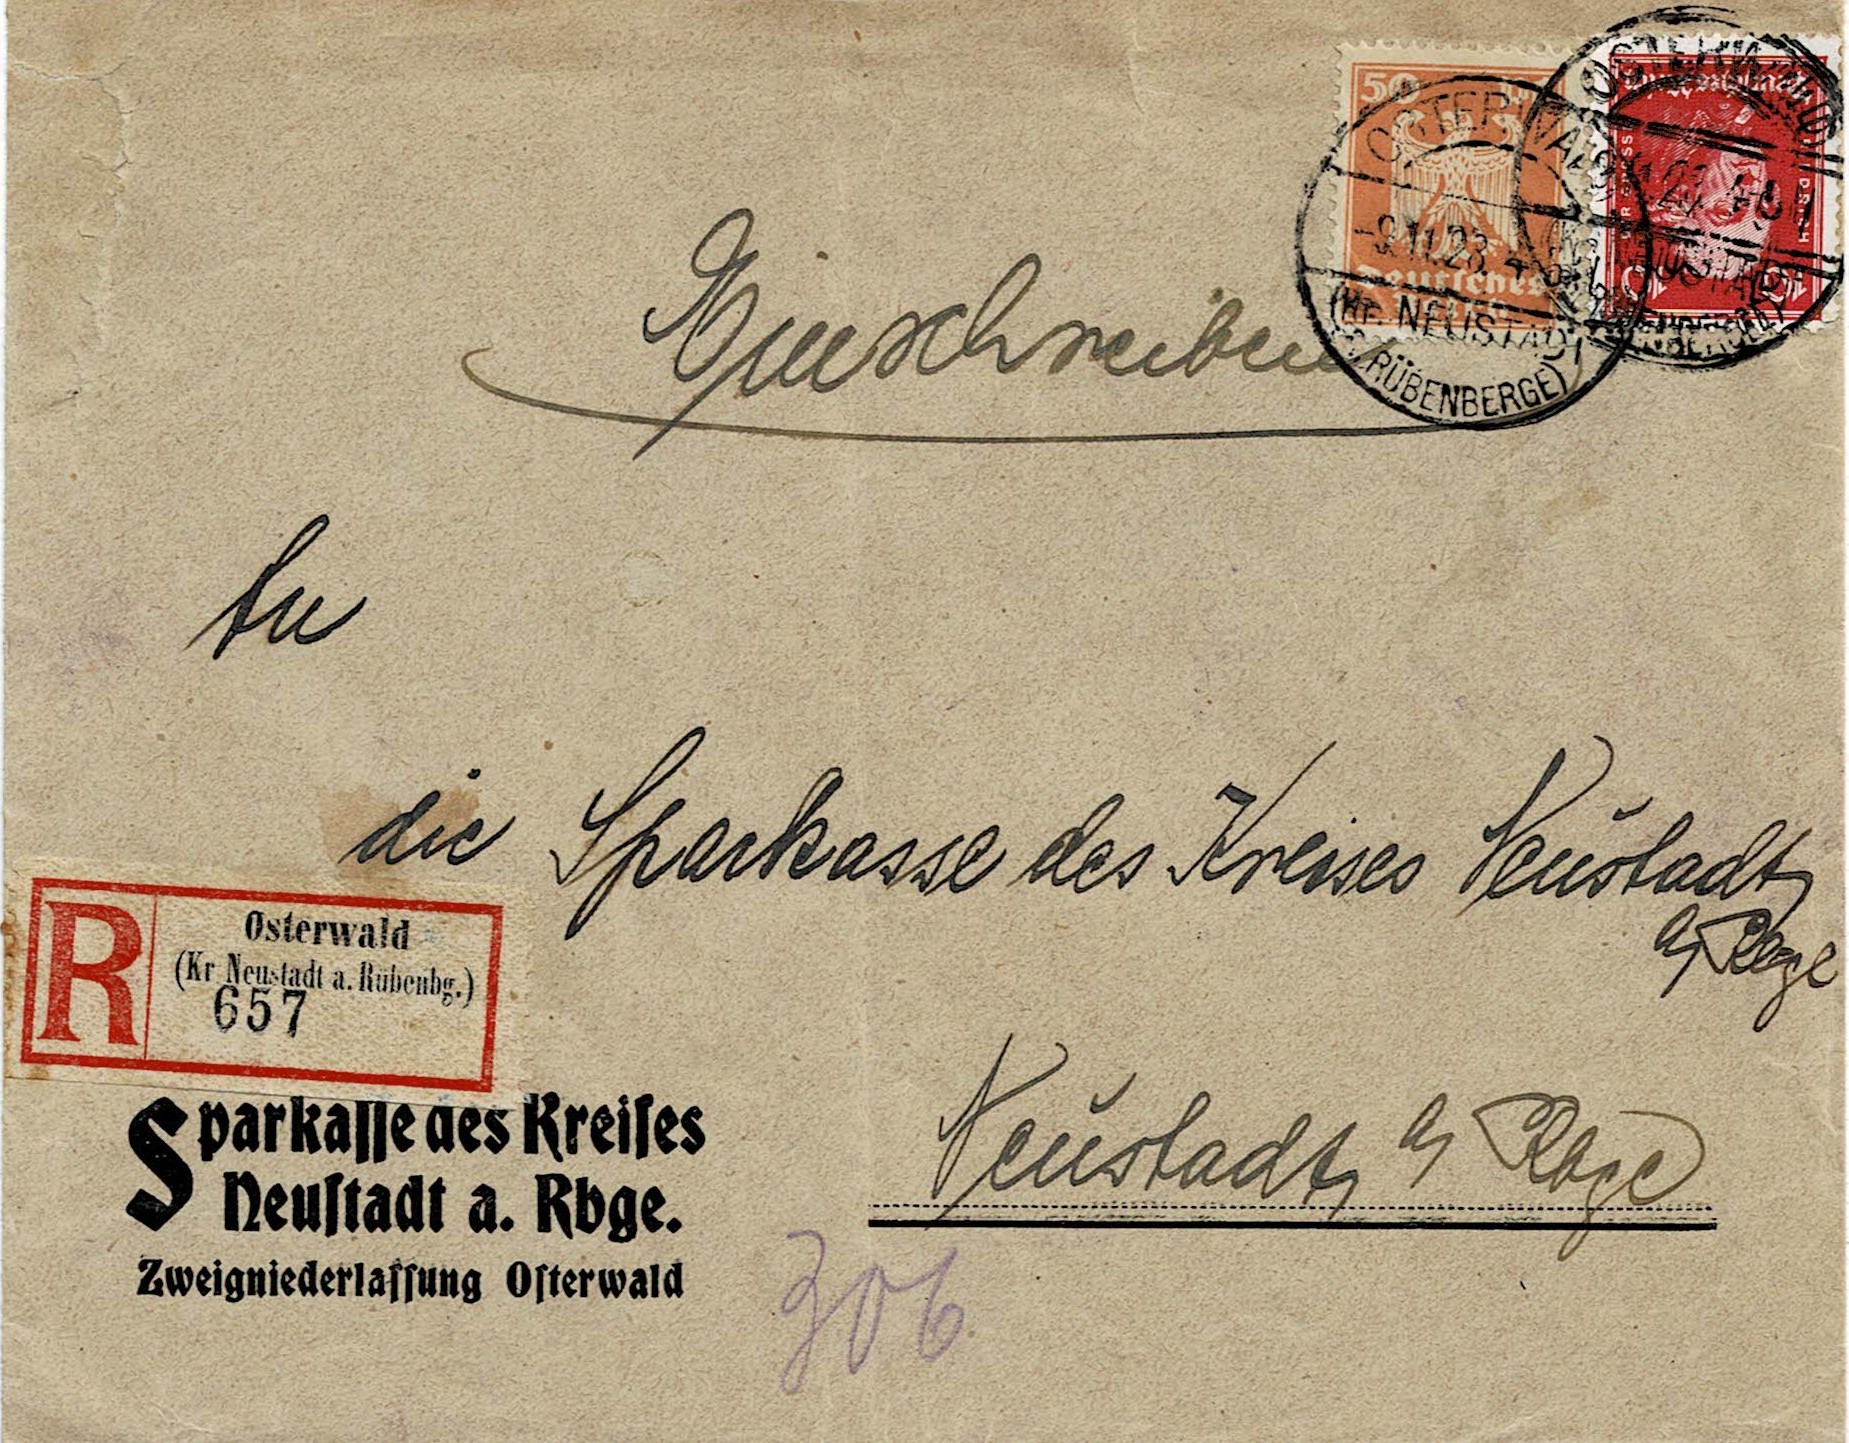 50
Deutsches
OSTERWALD
-9.11.28. 4-
(Kr. NEUSTADT
RÜBENBERGE)
OSTERWALD
Einschreiben
An
die Sparkasse des Kreises Neustadt
a/Rbge
Osterwald
R
(Kr Neustadt a. Rübenbg.)
657
Sparkaſſe des Kreiſes
Neuſtadt a. Rbge.
Zweigniederlaſſung Oſterwald
Neustadt, a/Rbge
306